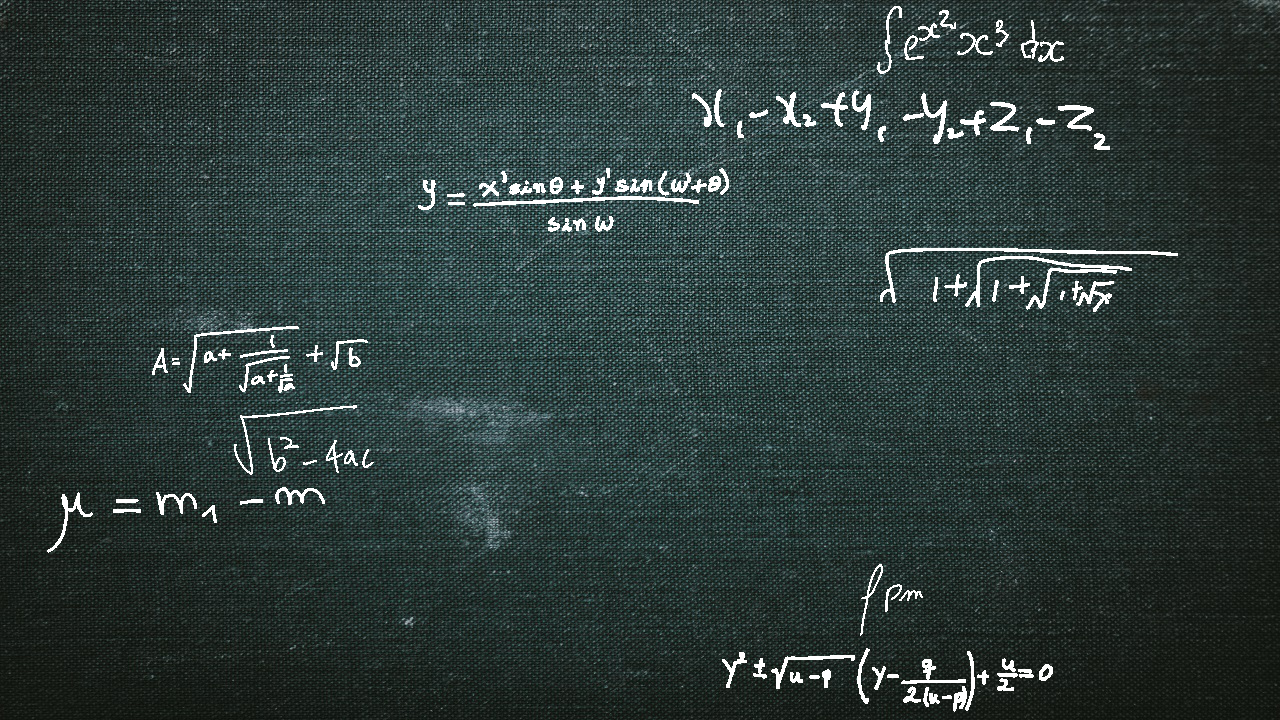 ∫ e^{x^2} x^3 dx
x_1 - x_2 + y_1 - y_2 + z_1 - z_2
y = \frac{x' sin θ + y' sin (ω + θ)}{sin ω}
\sqrt{1 + \sqrt{1 + \sqrt{1 + \sqrt{x}}}}
A = \sqrt{a + \frac{1}{\sqrt{a + \frac{1}{\sqrt{a}}}}} + \sqrt{b}
\sqrt{b^2 - 4ac}
μ = m_1 - m
∫ pm
y^2 ± \sqrt{u - p} (y - \frac{q}{2(u - p)}) + \frac{u}{2} = 0